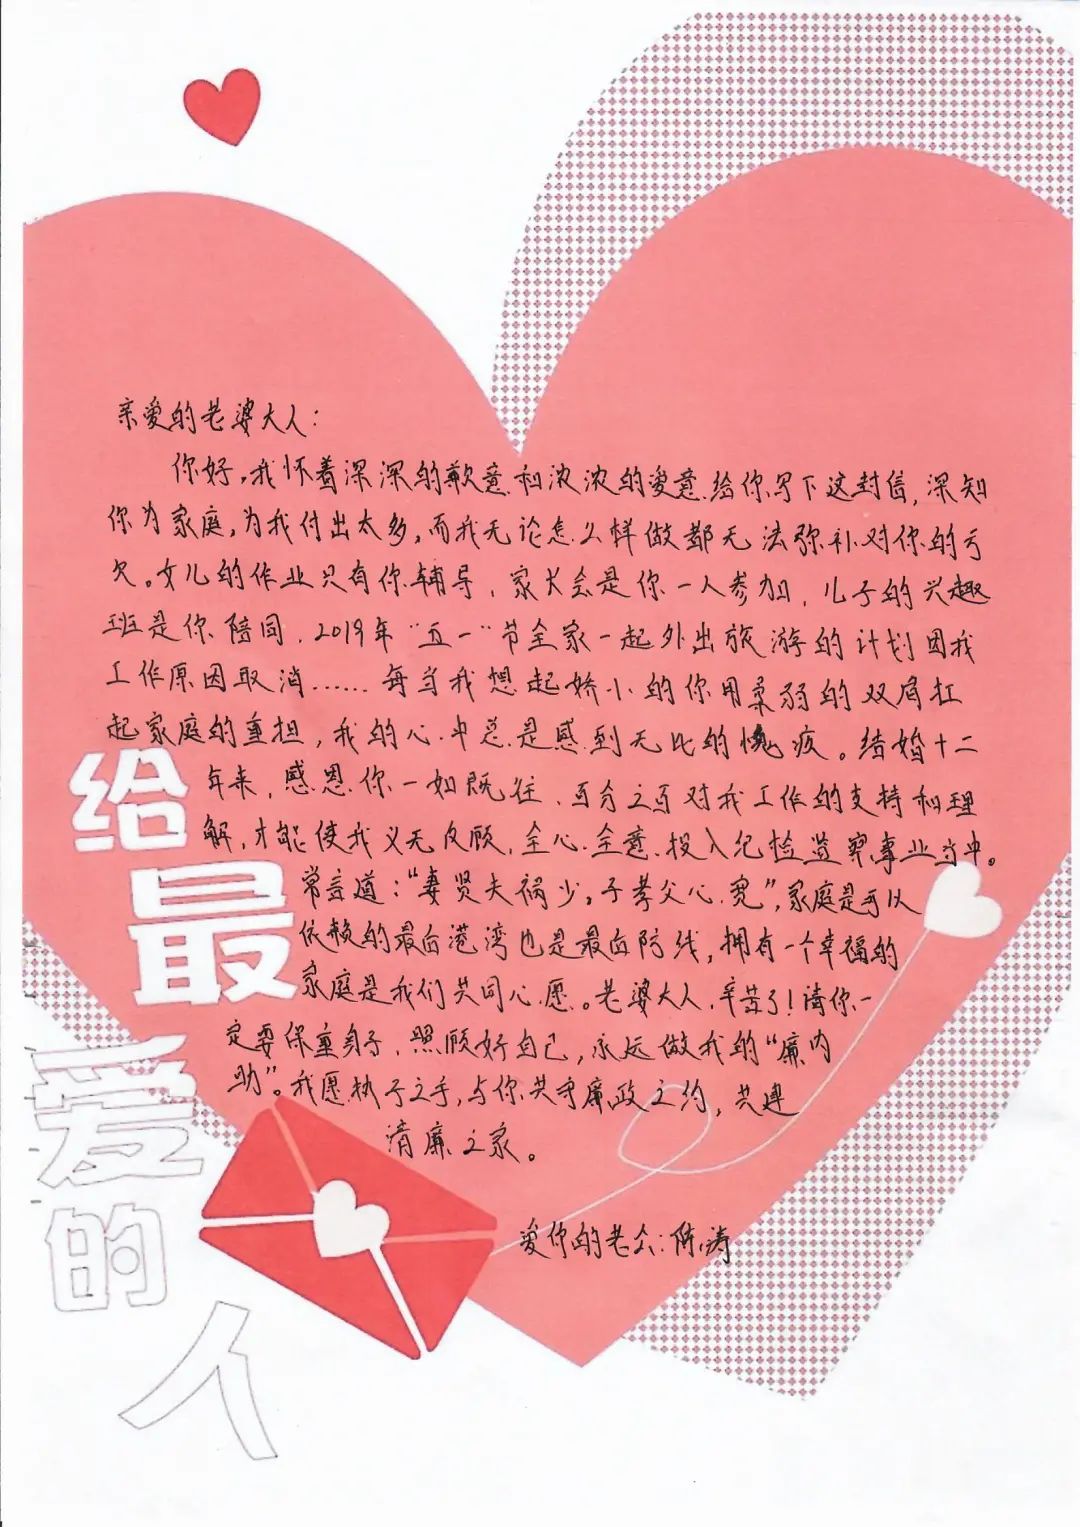 亲爱的老婆大人：
你好,我怀着深深的歉意和浓浓的爱意给你写下这封信,深知
你为家庭,为我付出太多,而我无论怎么样做都无法弥补对你的亏
欠。女儿的作业只有你辅导,家长会是你一人参加,儿子的兴趣
班是你陪同,2019年“五一”节全家一起外出旅游的计划因我
工作原因取消……每当我想起娇小的你用柔弱的双肩扛
起家庭的重担,我的心中总是感到无比的愧疚。结婚十二
年来,感恩你一如既往、百分之百对我工作的支持和理
解,才能使我义无反顾,全心全意投入纪检监察事业当中。
常言道：“妻贤夫祸少,子孝父心宽”,家庭是可以
依赖的最后港湾也是最后防线,拥有一个幸福的
家庭是我们共同心愿。老婆大人,辛苦了!请你一
定要保重身子,照顾好自己,永远做我的“廉内
助”。我愿执子之手,与你共守廉政之约,共建
清廉之家。
爱你的老公:陈涛
给
最
爱
的
人